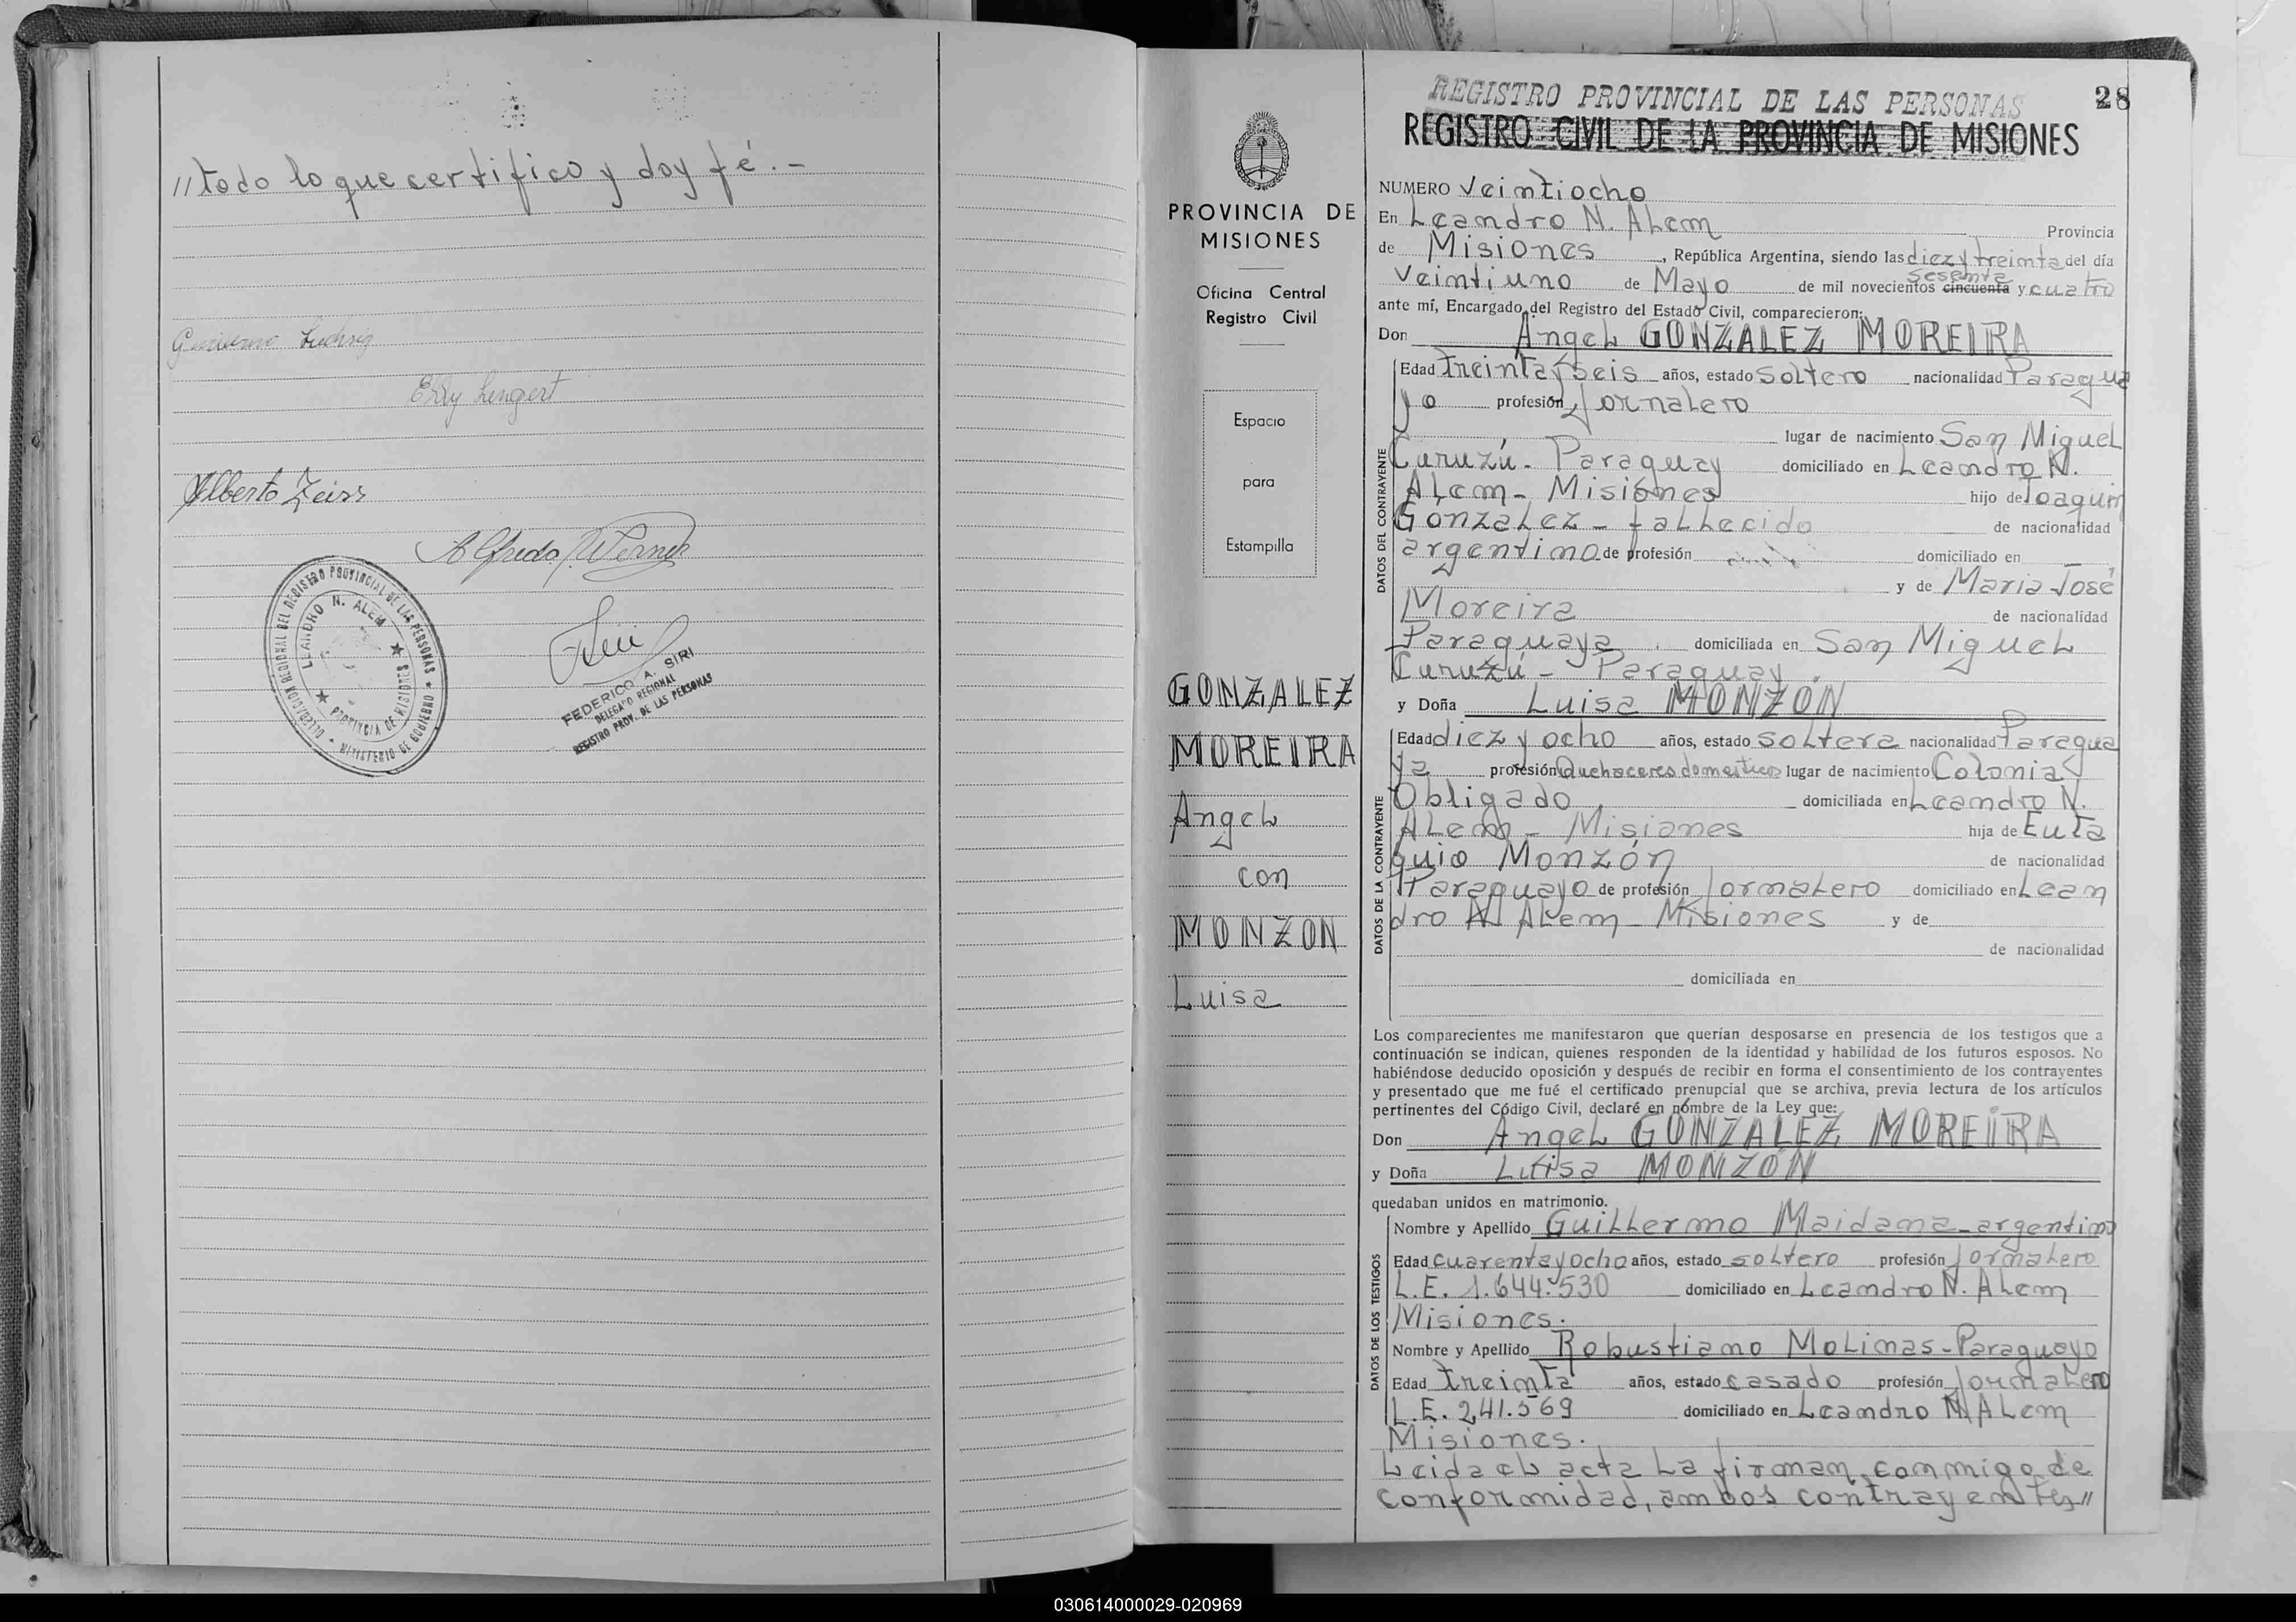 //todo lo que certifico y doy fé.-
Guillermo Ludwig
Erry Lengert
Alberto Zeiss
Alfredo Werner
DELEGACION REGIONAL DEL REGISTRO PROVINCIAL DE LAS PERSONAS
MINISTERIO DE GOBIERNO
LEANDRO N. ALEM
PROVINCIA DE MISIONES
FEDERICO A. SIRI
DELEGADO REGIONAL
REGISTRO PROV. DE LAS PERSONAS
PROVINCIA DE
MISIONES
Oficina Central
Registro Civil
Espacio
para
Estampilla
GONZALEZ
MOREIRA
Angel
con
MONZON
Luisa
28
REGISTRO PROVINCIAL DE LAS PERSONAS
REGISTRO CIVIL DE LA PROVINCIA DE MISIONES
NUMERO Veintiocho
En Leandro N. Alem Provincia
de Misiones, República Argentina, siendo las diez y treinta del día
sesenta
Veintiuno de Mayo de mil novecientos cincuenta y cuatro
ante mí, Encargado del Registro del Estado Civil, comparecieron:
Don Angel GONZALEZ MOREIRA
DATOS DEL CONTRAYENTE
Edad treinta y seis años, estado soltero nacionalidad Paragua
yo profesión Jornalero
lugar de nacimiento San Miguel
Curuzú - Paraguay domiciliado en Leandro N.
Alem - Misiones hijo de Joaquin
Gonzalez - fallecido de nacionalidad
argentino de profesión domiciliado en
y de Maria José
Moreira de nacionalidad
Paraguaya domiciliada en San Miguel
Curuzú - Paraguay
y Doña Luisa MONZÓN
DATOS DE LA CONTRAYENTE
Edad diez y ocho años, estado soltera nacionalidad Paragua
ya profesión Quehaceres domestico lugar de nacimiento Colonia
Obligado domiciliada en Leandro N.
Alem - Misiones hija de Euta
quio Monzón de nacionalidad
Paraguayo de profesión Jornalero domiciliado en Lean
dro N. Alem - Misiones y de
de nacionalidad
domiciliada en
Los comparecientes me manifestaron que querían desposarse en presencia de los testigos que a
continuación se indican, quienes responden de la identidad y habilidad de los futuros esposos. No
habiéndose deducido oposición y después de recibir en forma el consentimiento de los contrayentes
y presentado que me fué el certificado prenupcial que se archiva, previa lectura de los artículos
pertinentes del Código Civil, declaré en nombre de la Ley que:
Don Angel GONZALEZ MOREIRA
y Doña Luisa MONZÓN
quedaban unidos en matrimonio.
DATOS DE LOS TESTIGOS
Nombre y Apellido Guillermo Maidana - argentino
Edad cuarenta y ocho años, estado soltero profesión Jornalero
L.E. 1.644.530 domiciliado en Leandro N. Alem
Misiones.
Nombre y Apellido Robustiano Molinas - Paraguayo
Edad treinta años, estado casado profesión Jornalero
L.E. 241.569 domiciliado en Leandro N Alem
Misiones.
Leida el acta la firman conmigo de
conformidad, ambos contrayentes//
030614000029-020969